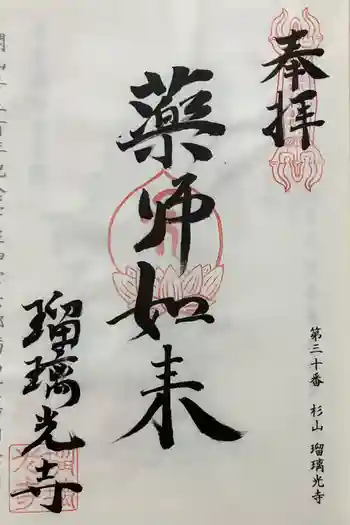 奉拝
第三十番 杉山 瑠璃光寺
薬師如来
瑠璃光寺